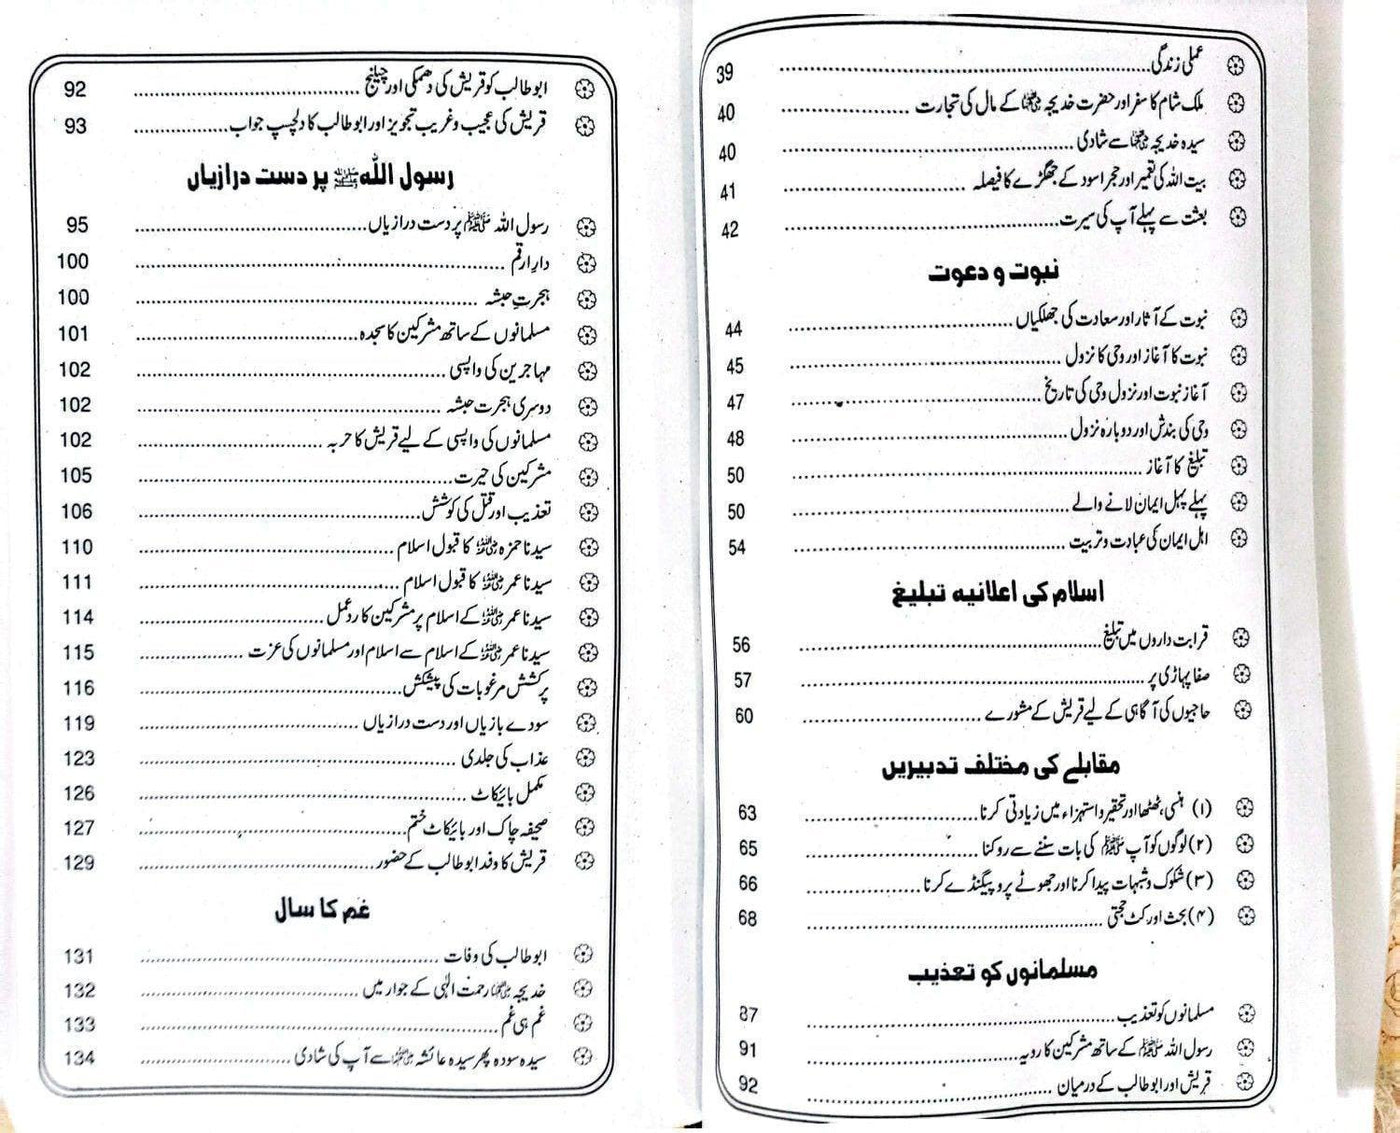 عملی زندگی 39
ملک شام کا سفر اور حضرت خدیجہ رضی اللہ عنہا کے مال کی تجارت 40
سیدہ خدیجہ رضی اللہ عنہا سے شادی 40
بیت اللہ کی تعمیر اور حجر اسود کے جھگڑے کا فیصلہ 41
بعثت سے پہلے آپ کی سیرت 42
نبوت و دعوت
نبوت کے آثار اور سعادت کی جھلکیاں 44
نبوت کا آغاز اور وحی کا نزول 45
آغاز نبوت اور نزول وحی کی تاریخ 47
وحی کی بندش اور دوبارہ نزول 48
تبلیغ کا آغاز 50
پہلے پہل ایمان لانے والے 50
اہل ایمان کی عبادت و تربیت 54
اسلام کی اعلانیہ تبلیغ
قرابت داروں میں تبلیغ 56
صفا پہاڑی پر 57
حاجیوں کی آگاہی کے لیے قریش کے مشورے 60
مقابلے کی مختلف تدبیریں
(۱) ہنسی، ٹھٹھا اور تحقیر و استہزاء میں زیادتی کرنا 63
(۲) لوگوں کو آپ ﷺ کی بات سننے سے روکنا 65
(۳) شکوک و شبہات پیدا کرنا اور جھوٹے پروپیگنڈے کرنا 66
(۴) بحث اور کٹ حجتی 68
مسلمانوں کو تعذیب
مسلمانوں کو تعذیب 87
رسول اللہ ﷺ کے ساتھ مشرکین کا رویہ 91
قریش اور ابوطالب کے درمیان 92
ابوطالب کو قریش کی دھمکی اور چیلنج 92
قریش کی عجیب و غریب تجویز اور ابوطالب کا دلچسپ جواب 93
رسول اللہ ﷺ پر دست درازیاں
رسول اللہ ﷺ پر دست درازیاں 95
دارِ ارقم 100
ہجرتِ حبشہ 100
مسلمانوں کے ساتھ مشرکین کا سجدہ 101
مہاجرین کی واپسی 102
دوسری ہجرت حبشہ 102
مسلمانوں کی واپسی کے لیے قریش کا حربہ 102
مشرکین کی حیرت 105
تعذیب اور قتل کی کوشش 106
سیدنا حمزہ رضی اللہ عنہ کا قبول اسلام 110
سیدنا عمر رضی اللہ عنہ کا قبول اسلام 111
سیدنا عمر رضی اللہ عنہ کے اسلام پر مشرکین کا ردعمل 114
سیدنا عمر رضی اللہ عنہ کے اسلام سے اسلام اور مسلمانوں کی عزت 115
پرکشش مرغوبات کی پیشکش 116
سودے بازیاں اور دست درازیاں 119
عذاب کی جلدی 123
مکمل بائیکاٹ 126
صحیفہ چاک اور بائیکاٹ ختم 127
قریش کا وفد ابوطالب کے حضور 129
غم کا سال
ابوطالب کی وفات 131
خدیجہ رضی اللہ عنہا رحمت الٰہی کے جوار میں 132
غم ہی غم 133
سیدہ سودہ پھر سیدہ عائشہ رضی اللہ عنہا سے آپ کی شادی 134